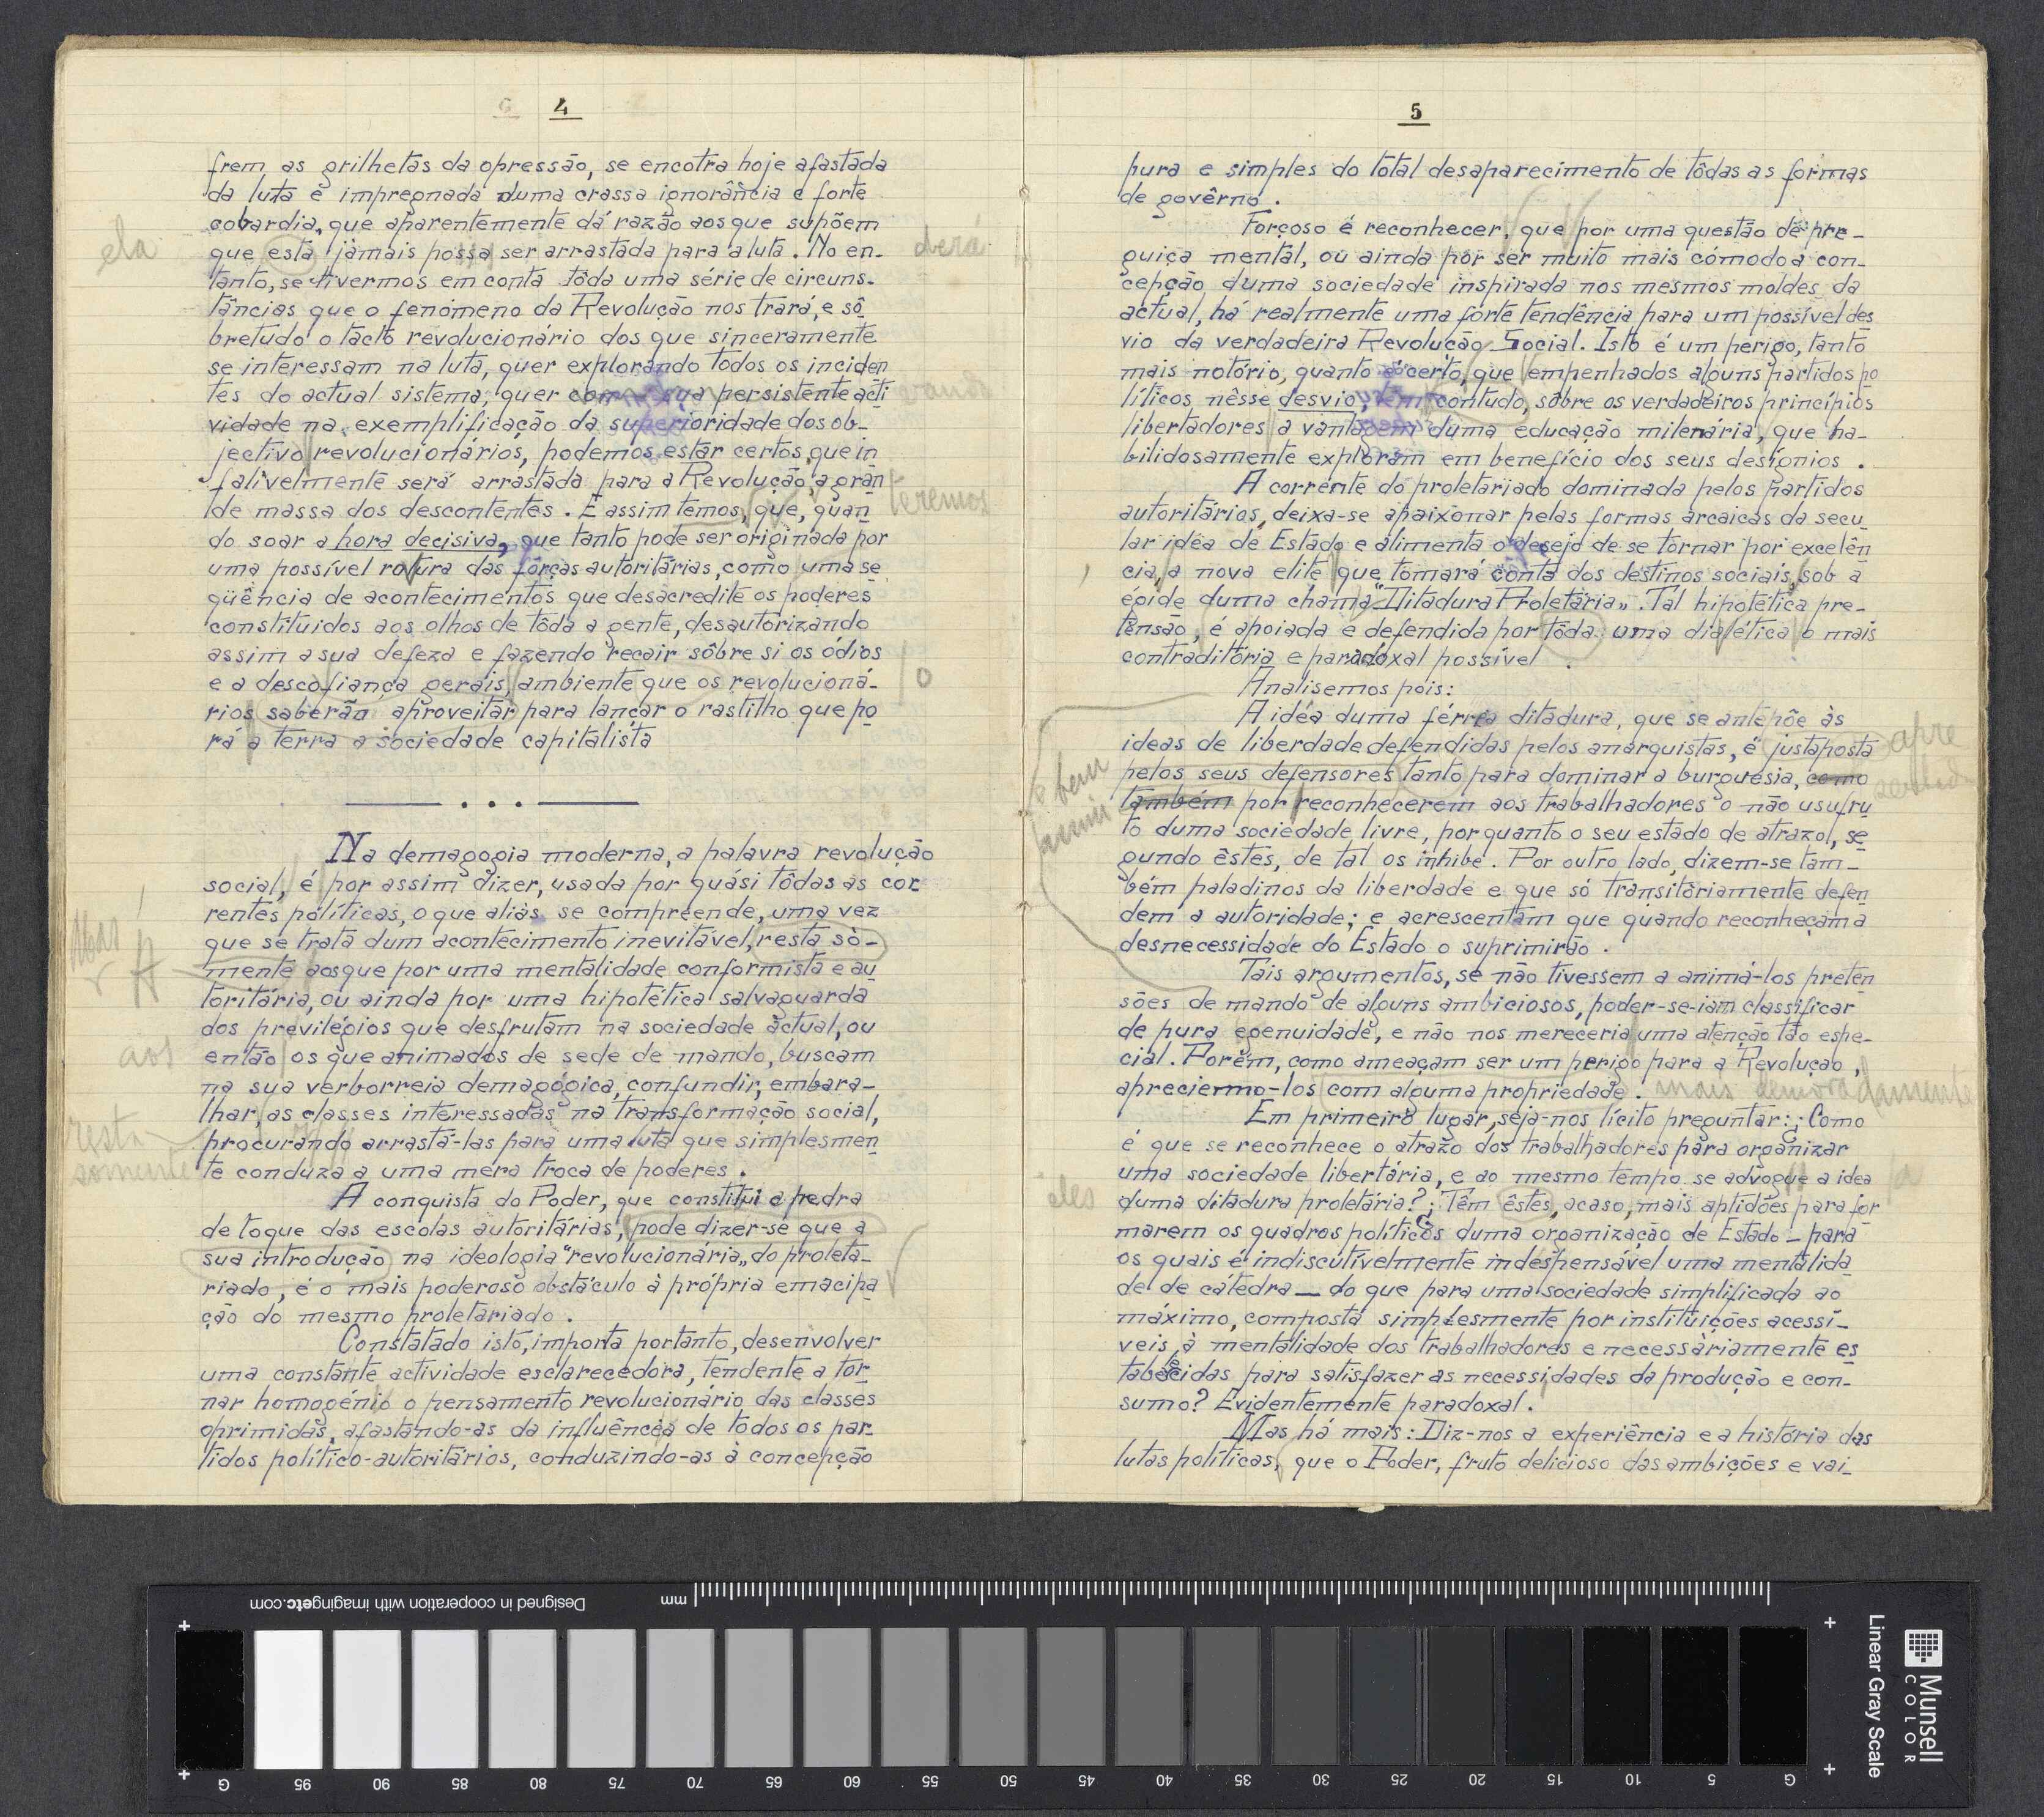 4
frem, as grilhetas da opressão, se encotra hoje afastada
da luta e impregnada duma crassa ignorância e forte
cobardia, que aparentemente dá razão aos que supõem
ela
que esta jàmais possa ser arrastada para a luta. No en-
derá
tanto, se tivermos em conta tôda uma série de circuns-
tâncias que o fenómeno da Revolução nos trará, e sô
bretudo o tacto revolucionário dos que sinceramente
se interessam na luta, quer explorando todos os inciden
tes do actual sistema, quer com a sua persistente acti
vidade na exemplificação da superioridade dos ob-
jectivo revolucionários, podemos estar certos, que in
falivelmente será arrastada para a Revolução, a gran
de massa dos descontentes. E assim temos, que, quan
teremos
do soar a hora decisiva, que tanto pode ser originada por
uma possível rotura das fôrças autoritárias, como uma se
qüência de acontecimentos que desacredite os poderes
constituidos aos olhos de tôda a gente, desautorizando
assim a sua defeza e fazendo recair sôbre si os ódios
e a descofiança gerais, ambiente que os revolucioná-
o
rios saberão aproveitar para lançar o rastilho que po
rá a terra a sociedade capitalista
Na demagogia moderna, a palavra revolução
social, é por assim dizer, usada por quási tôdas as cor
rentes políticas, o que aliàs se compreende, uma vez
Mas
que se trata dum acontecimento inevitável, resta sò-
A
mente aos que por uma mentalidade conformista e au
toritária, ou ainda por uma hipotética salvaguarda
dos previlégios que desfrutam na sociedade actual, ou
aos
então os que animados de sede de mando, buscam
na sua verborreia demagógica, confundir, embara-
lhar, as classes interessadas na transformação social,
resta
somente
procurando arrastá-las para uma luta que simplesmen
te conduza a uma mera troca de poderes.
A conquista do Poder, que constitui a pedra
de toque das escolas autoritárias, pode dizer-se que a
sua introdução na ideologia "revolucionária" do proleta-
riado, é o mais poderoso obstáculo à própria emacipa
ção do mesmo proletariado.
Constatado isto, importa portanto, desenvolver
uma constante actividade esclarecedora, tendente a tor
nar homogénio o pensamento revolucionário das classes
oprimidas, afastando-as da influência de todos os par
tidos político-autoritários, conduzindo-as à concepção
5
pura e simples do total desaparecimento de tôdas as formas
de govêrno.
Forçoso é reconhecer, que por uma questão de pre-
guiça mental, ou ainda por ser muito mais cómodo a con-
cepção duma sociedade inspirada nos mesmos moldes da
actual, há realmente uma forte tendência para um possível des
vio da verdadeira Revolução Social. Isto é um perigo, tanto
mais notório, quanto é certo, que empenhados alguns partidos po
líticos nêsse desvio, têm contudo, sôbre os verdadeiros princípios
libertadores a vantagem duma educação milenária, que ha-
bilidosamente exploram em benefício dos seus desígnios.
A corrente do proletariado dominada pelos partidos
autoritários, deixa-se apaixonar pelas formas arcaicas da secu
lar idéa de Estado e alimenta o desejo de se tornar por excelên
cia, a nova elite que tomará conta dos destinos sociais, sob a
égide duma chama "Ditadura Proletária". Tal hipotética pre-
tensão, é apoiada e defendida por tôda uma dialética o mais
contraditória e paradoxal possível.
Analisemos pois:
A idéa duma férrea ditadura, que se antepõe às
ideas de liberdade defendidas pelos anarquistas, é justaposta
apre
pelos seus defensores tanto para dominar a burguesia, como
sentada
e bem
assim
também por reconhecerem aos trabalhadores o não usufru
to duma sociedade livre, porquanto o seu estado de atrazo, se
gundo êstes, de tal os inhibe. Por outro lado, dizem-se tam-
bém paladinos da liberdade e que só transitòriamente defen
dem a autoridade; e acrescentam que quando reconheçam a
desnecessidade do Estado o suprimirão.
Tais argumentos, se não tivessem a animá-los preten
sões de mando de alguns ambiciosos, poder-se-iam classificar
de pura egenuidade, e não nos mereceria uma atenção tão espe-
cial. Porém, como ameaçam ser um perigo para a Revolução,
apreciermo-los com alguma propriedade. mais demoradamente
Em primeiro lugar, seja-nos lícito preguntar: ¿Como
é que se reconhece o atrazo dos trabalhadores para organizar
uma sociedade libertária, e ao mesmo tempo se advogue a idea
a
eles
duma ditadura proletária? ¿Têm êstes, acaso, mais aptidões para for
marem os quadros políticos duma organização de Estado — para
os quais é indiscutìvelmente indespensável uma mentalida
de de cátedra — do que para uma sociedade simplificada ao
máximo, composta simplesmente por instituições acessí-
veis, à mentalidade dos trabalhadores e necessàriamente es
tabelecidas para satisfazer as necessidades da produção e con-
sumo? Evidentemente paradoxal.
Mas há mais: Diz-nos a experiência e a história das
lutas políticas, que o Poder, fruto delicioso das ambições e vai-
Designed in cooperation with imagingetc.com
mm
G 95 90 85 80 75 70 65 60 55 50 45 40 35 30 25 20 15 10 5 G
Munsell
COLOR
Linear Gray Scale